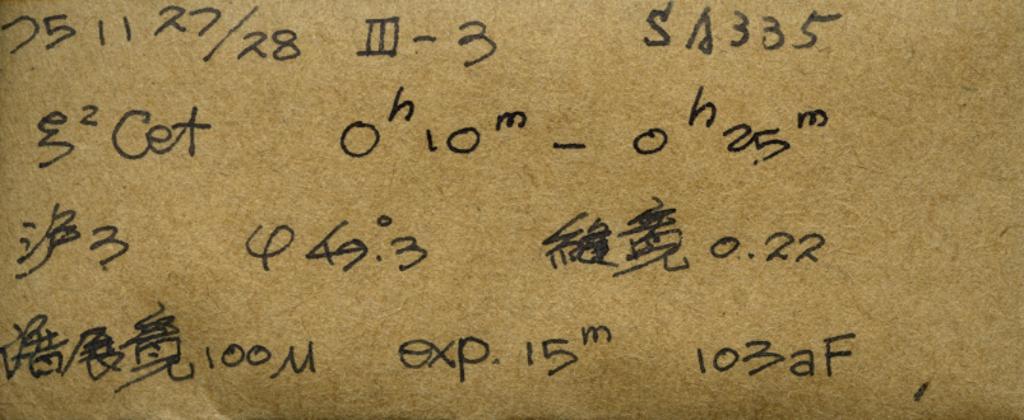 75 11 27/28 Ⅲ-3 SA335
ξ² Cet 0ʰ10ᵐ - 0ʰ25ᵐ
沪3 φ 49°.3 縫寬 0.22
谱展寬100μ exp. 15ᵐ 103aF